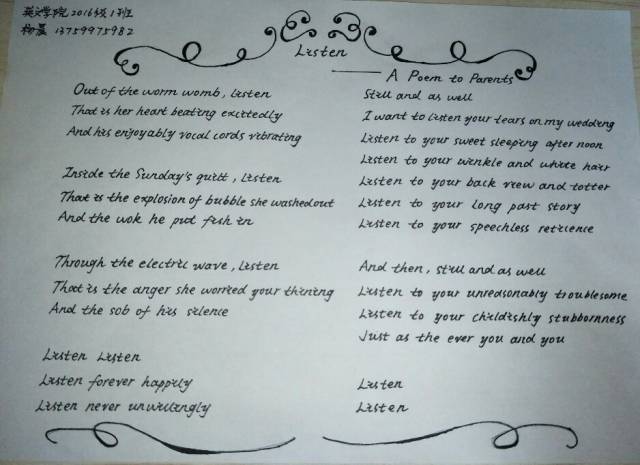 英文学院2016级1班
杨晨 13759975982
Listen
—— A Poem to Parents
Out of the worm womb, listen
That is her heart beating excitedly
And his enjoyably vocal cords vibrating
Inside the Sunday's quilt, listen
That is the explosion of bubble she washed out
And the wok he put fish in
Through the electric wave, listen
That is the anger she worried your thining
And the sob of his silence
Listen Listen
Listen forever happily
Listen never unwillingly
Still and as well
I want to listen your tears on my wedding
Listen to your sweet sleeping after noon
Listen to your winkle and white hair
Listen to your back view and totter
Listen to your long past story
Listen to your speechless retrience
And then, still and as well
Listen to your unreasonably troublesome
Listen to your childishly stubbornness
Just as the ever you and you
Listen
Listen